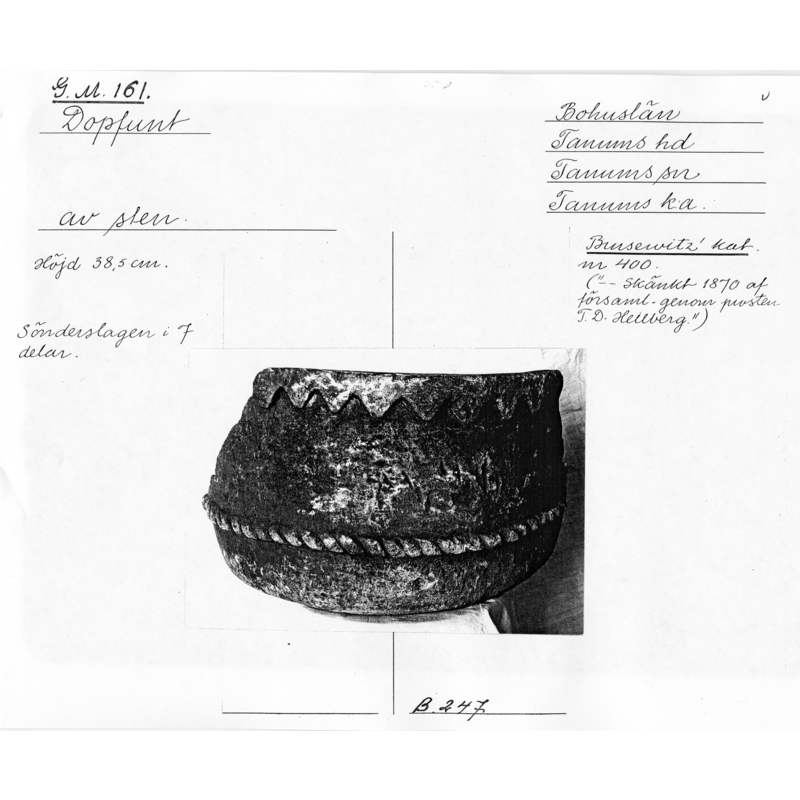 G. M. 161.
Dopfunt
av sten.
Höjd 38,5 cm.
Sönderslagen i 7
delar.
Bohuslän
Tanums hd
Tanums sn
Tanums k:a.
Brusewitz' kat.
nr 400.
("-- Skänkt 1870 af
församl. genom prosten
T. D. Hellberg.")
B. 247